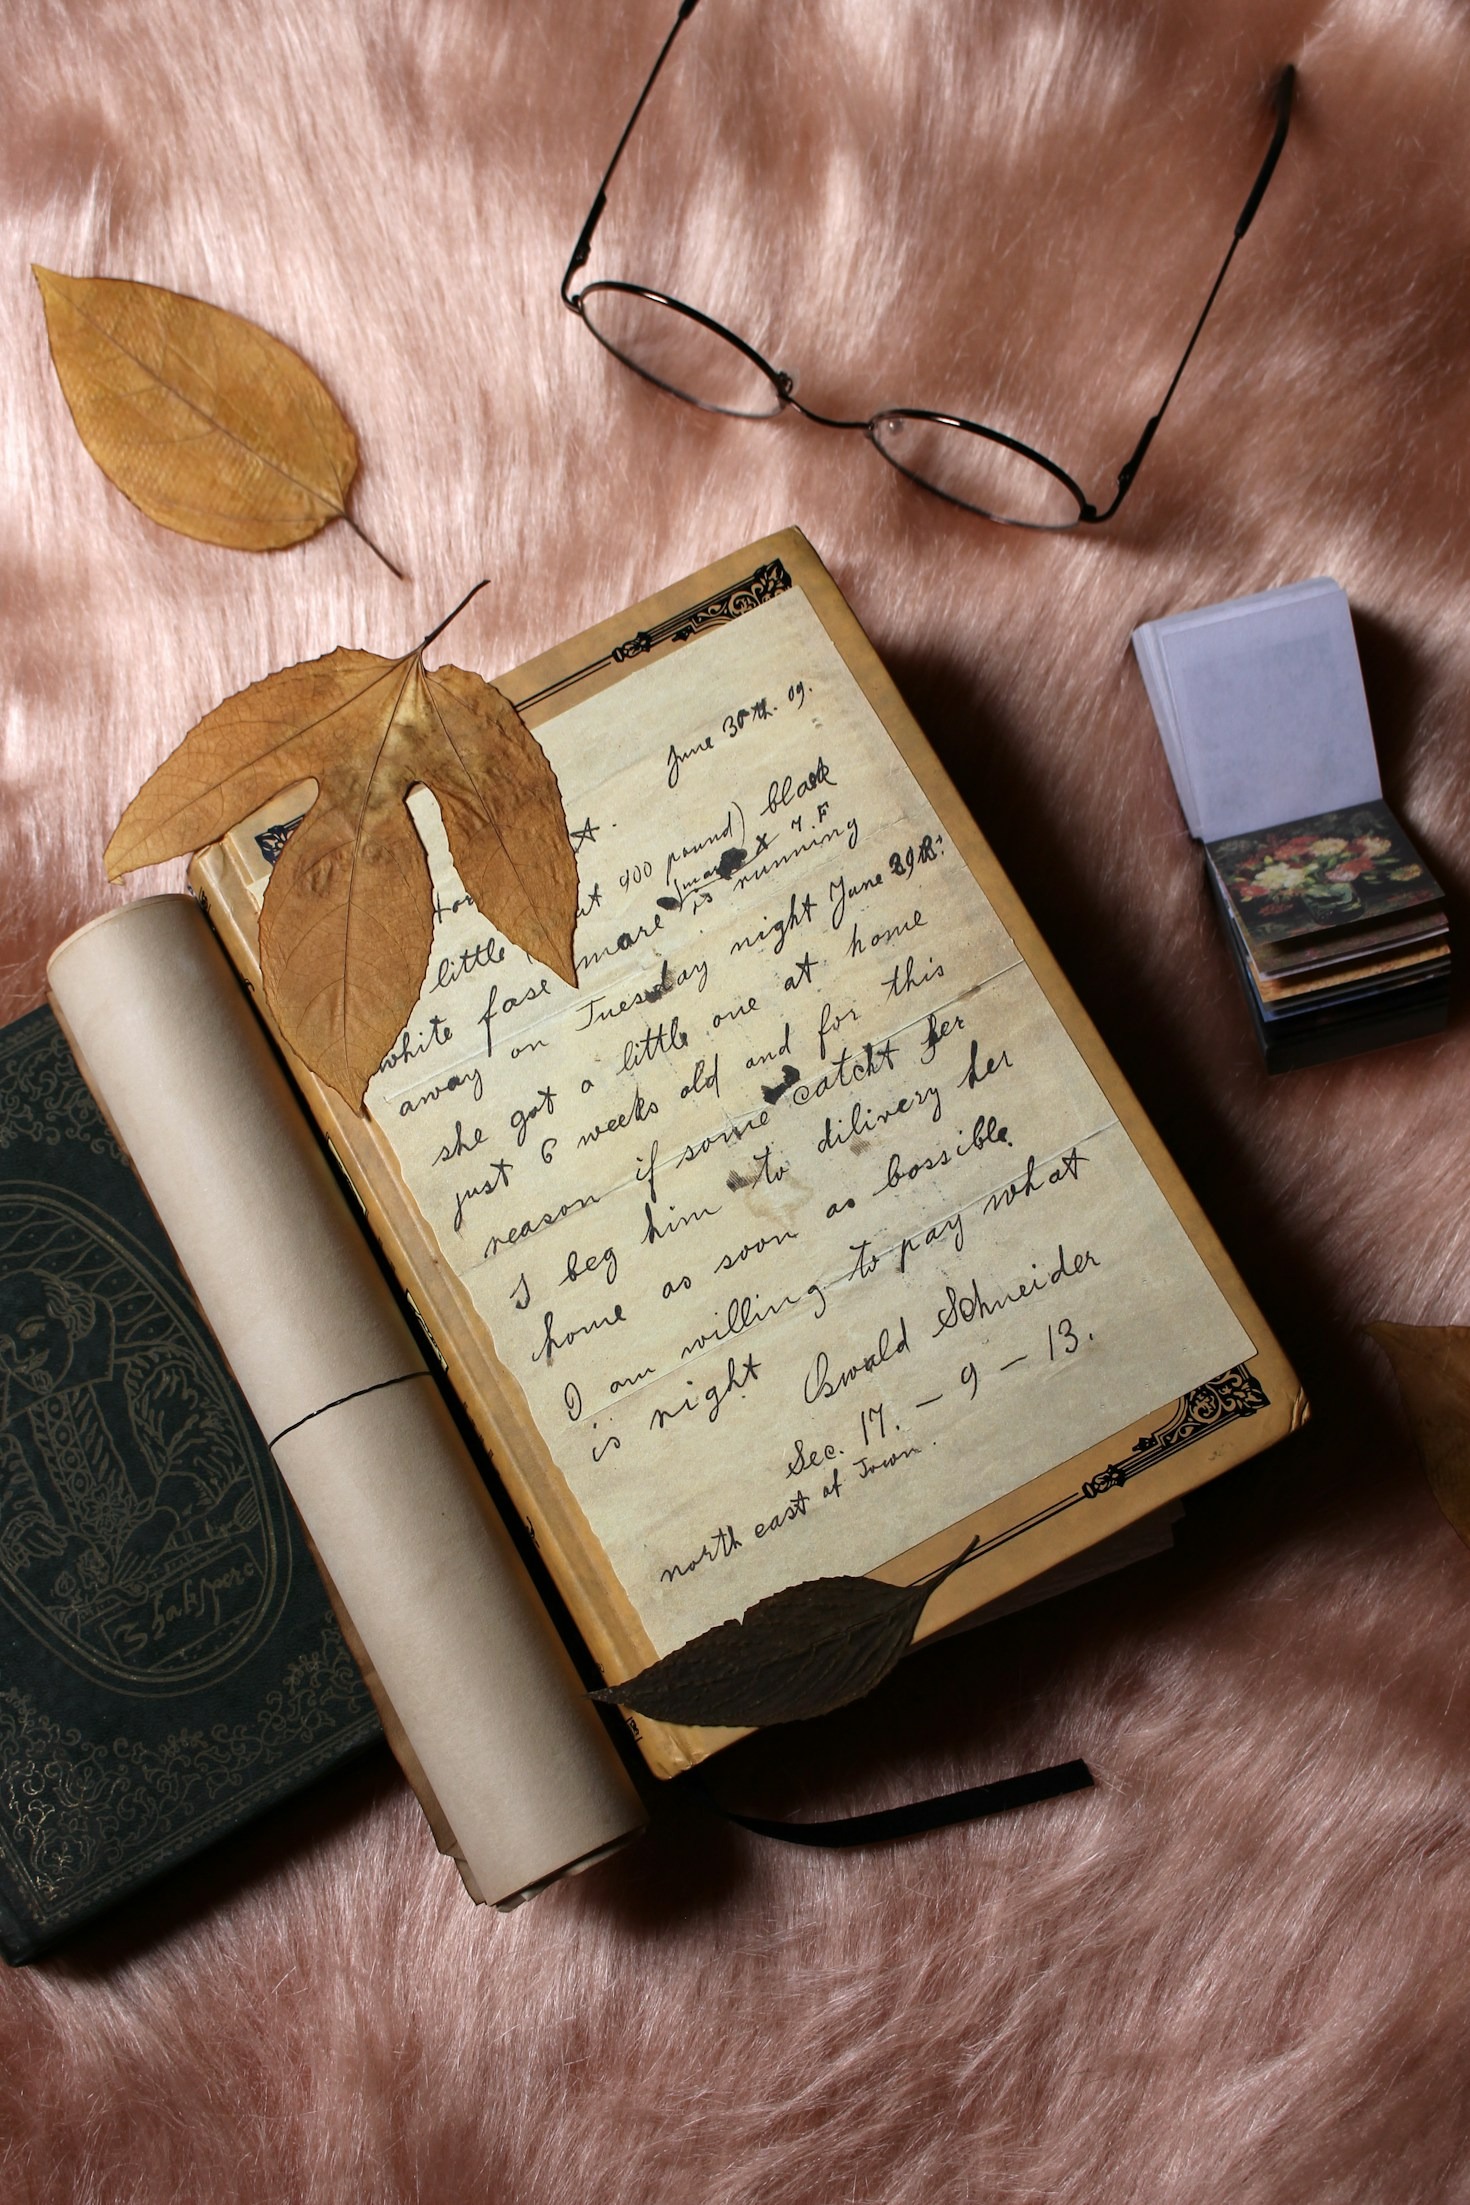 June 30th. 09.
900 pound) black
little
white fase mare is running
away on Tuesday night June 29th.
she got a little one at home
just 6 weeks old and for this
reason if some catcht her
I beg him to dilivery her
home as soon as bossible
I am willing to pay what
is right Oswald Schneider
Sec. 17. – 9 – 13.
north east of Town.